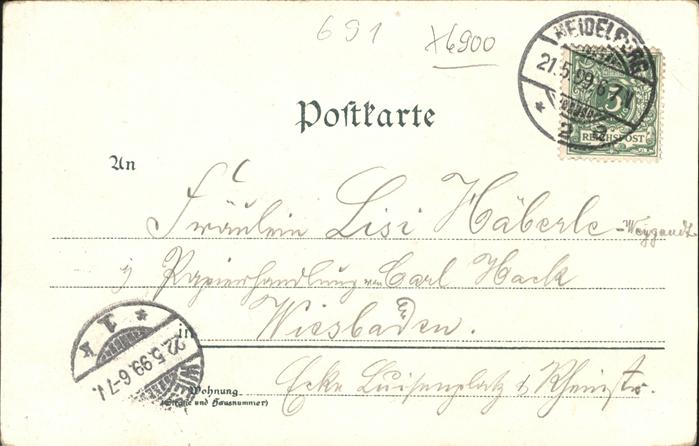 691 X6900
HEIDELBERG
21.5.99.6-7 N
* 2 a
5
REICHSPOST
Postkarte
An
Fräulein Lisi Häberle - Weygandt
Papierhandlung von Carl Hack
in Wiesbaden.
Wohnung
(Straße und Hausnummer)
Ecke Luisenplatz & Rheinstr.
* 1 k
22.5.99.6-7